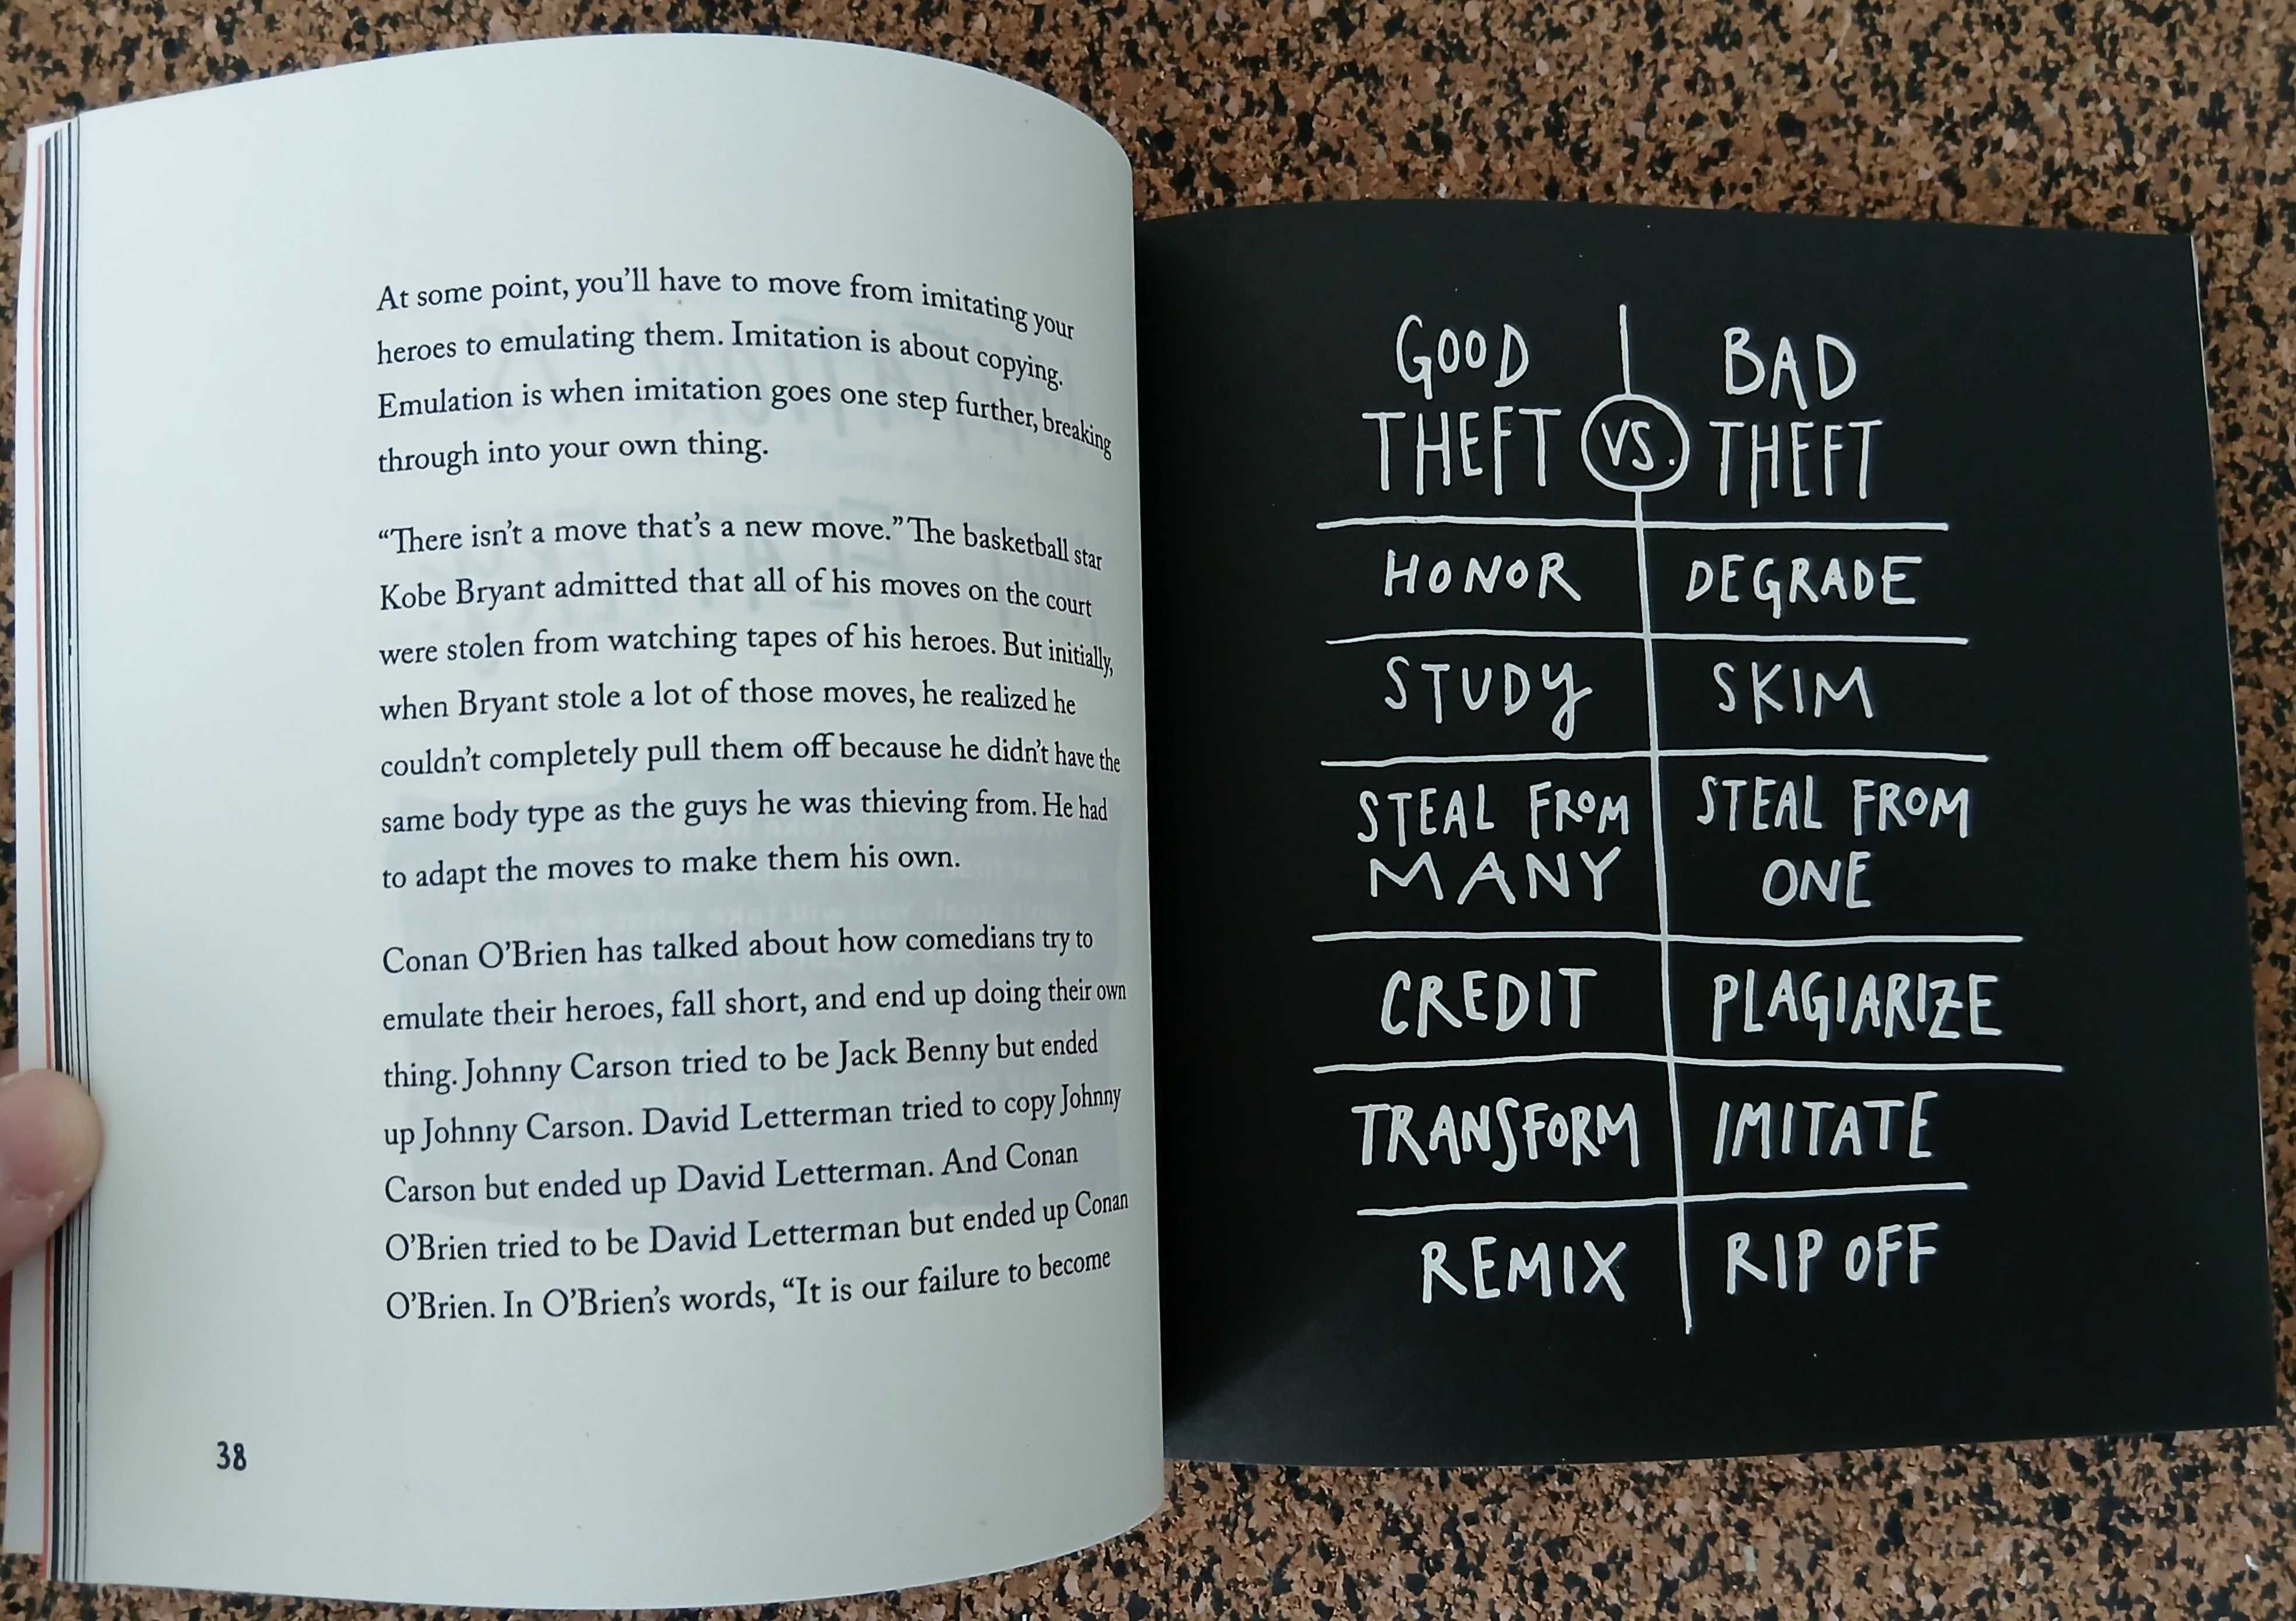 At some point, you'll have to move from imitating your
heroes to emulating them. Imitation is about copying.
Emulation is when imitation goes one step further, breaking
through into your own thing.
“There isn't a move that's a new move.” The basketball star
Kobe Bryant admitted that all of his moves on the court
were stolen from watching tapes of his heroes. But initially,
when Bryant stole a lot of those moves, he realized he
couldn't completely pull them off because he didn't have the
same body type as the guys he was thieving from. He had
to adapt the moves to make them his own.
Conan O'Brien has talked about how comedians try to
emulate their heroes, fall short, and end up doing their own
thing. Johnny Carson tried to be Jack Benny but ended
up Johnny Carson. David Letterman tried to copy Johnny
Carson but ended up David Letterman. And Conan
O'Brien tried to be David Letterman but ended up Conan
O'Brien. In O'Brien's words, “It is our failure to become
38
GOOD THEFT VS. BAD THEFT
HONOR DEGRADE
STUDY SKIM
STEAL FROM MANY STEAL FROM ONE
CREDIT PLAGIARIZE
TRANSFORM IMITATE
REMIX RIP OFF